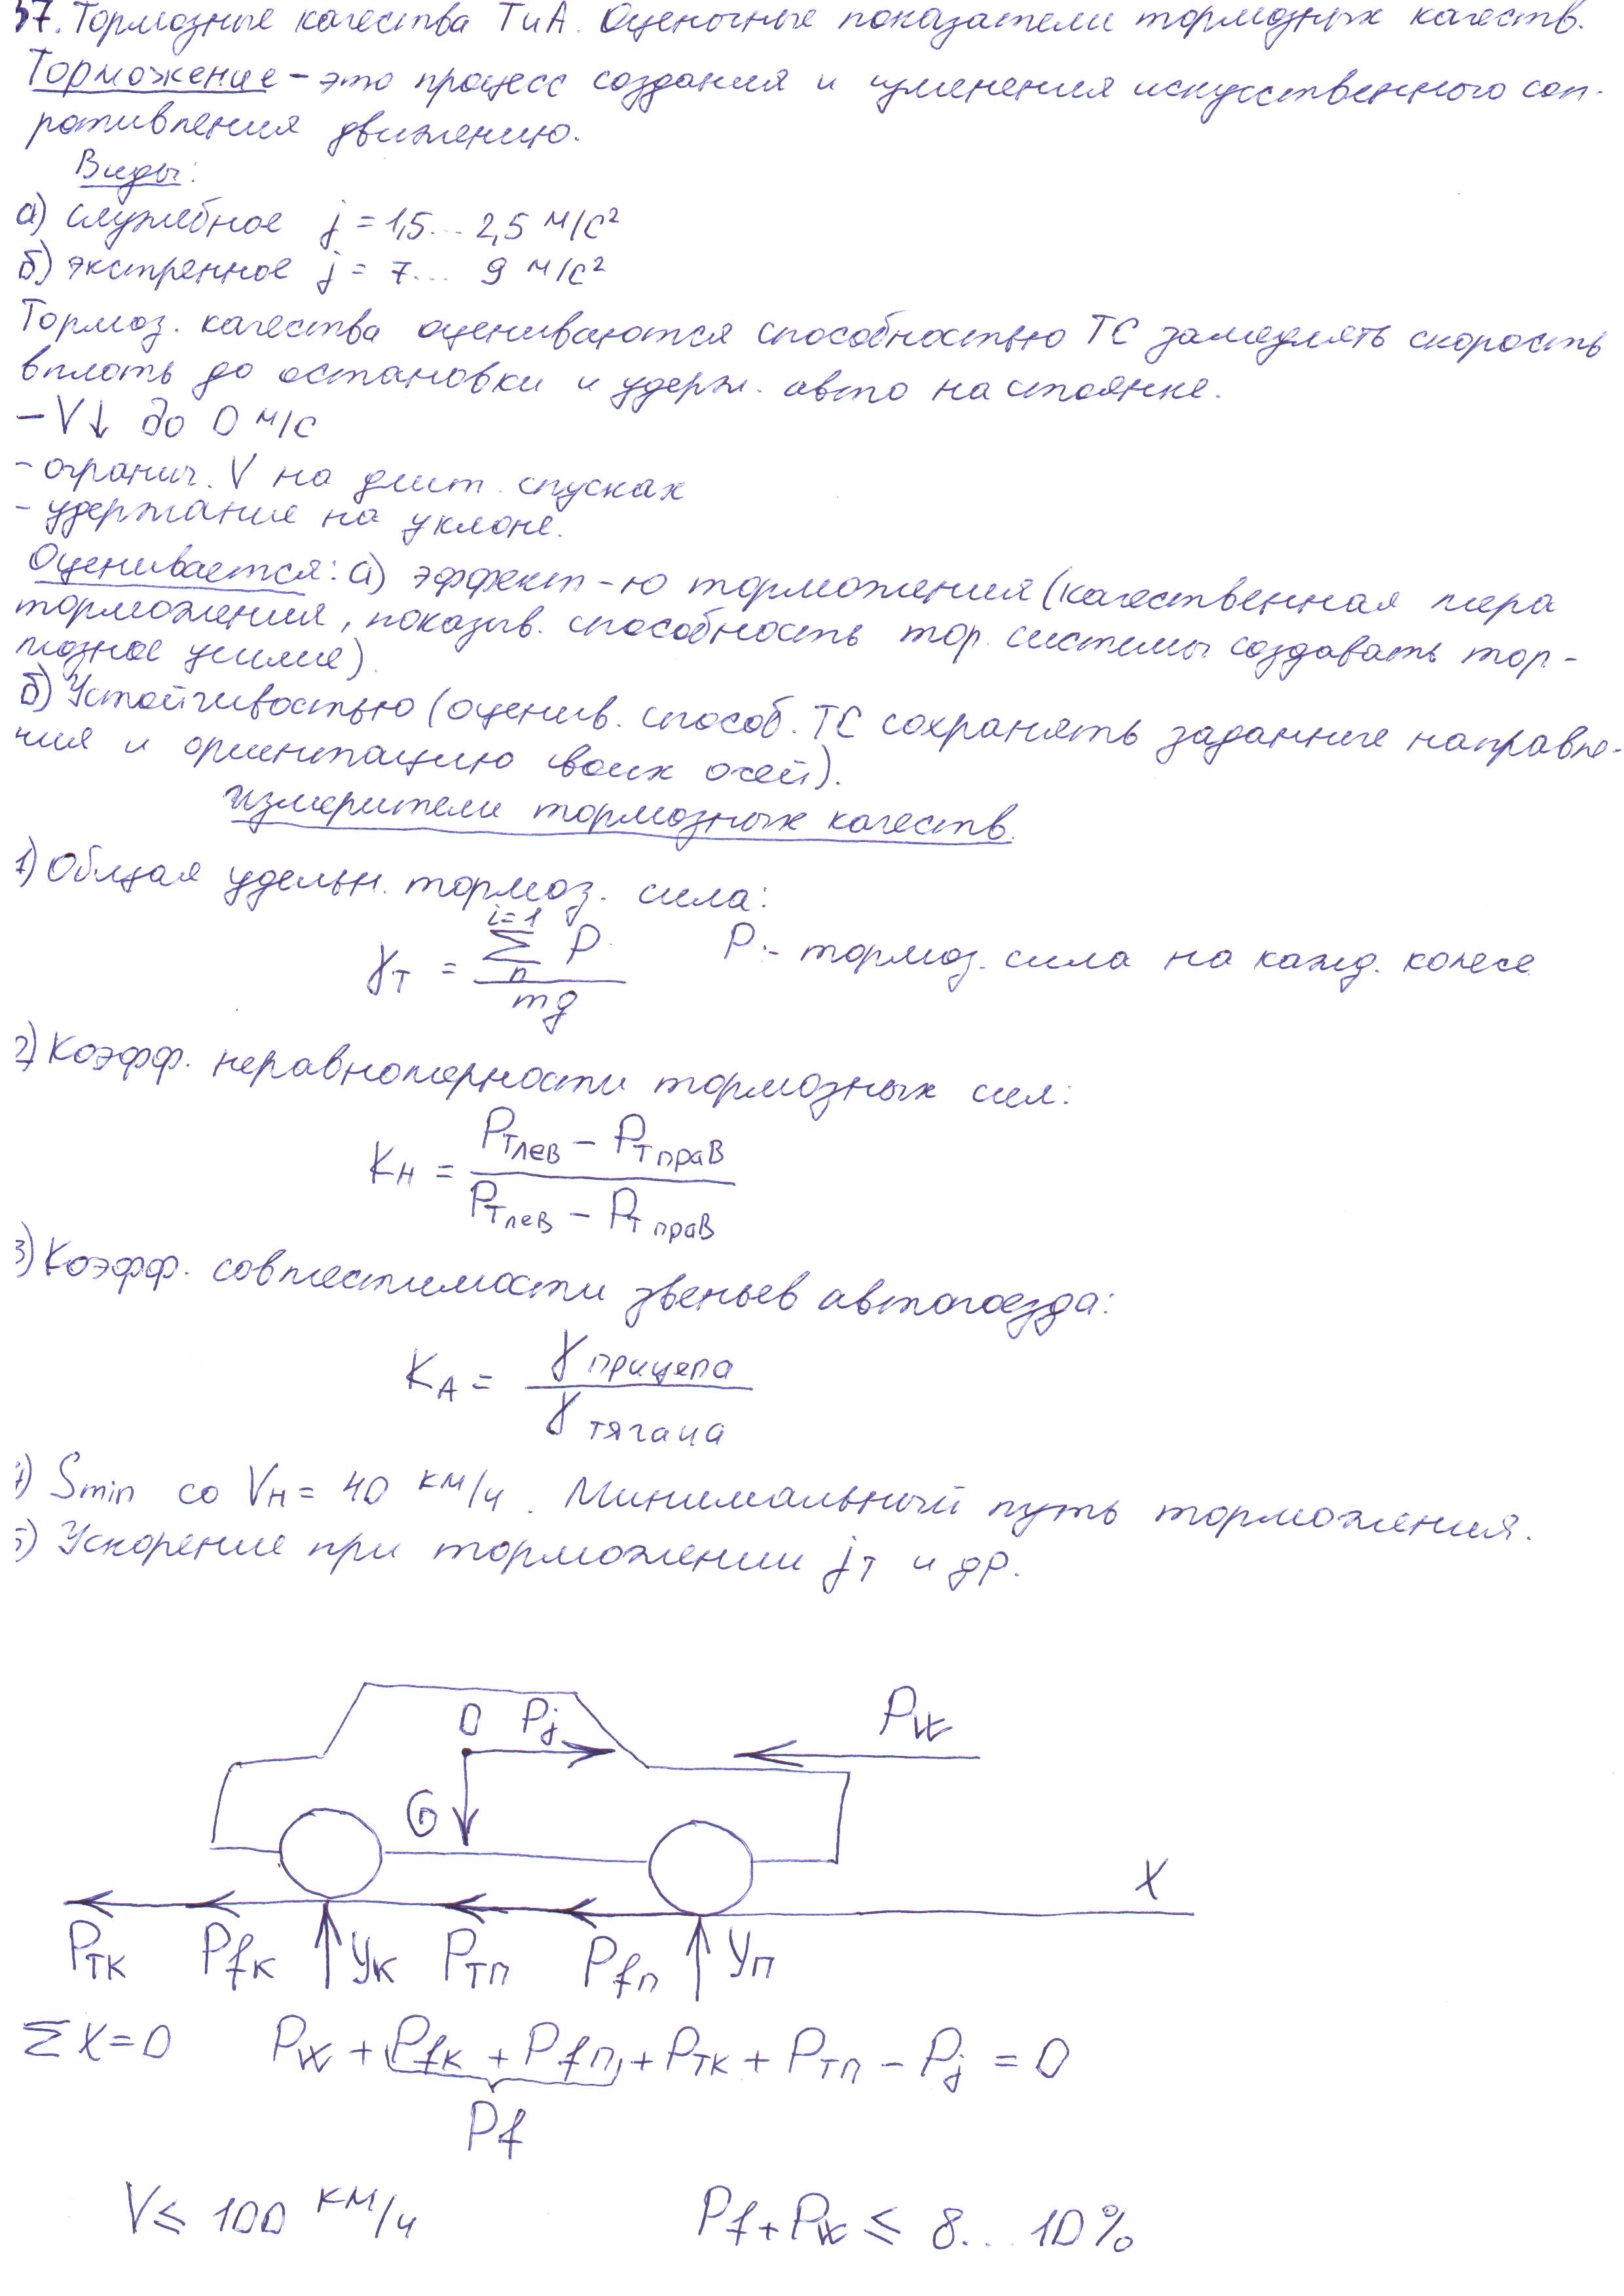 37. Тормозные качества ТиА. Оценочные показатели тормозных качеств.
Торможение – это процесс создания и изменения искусственного соп-
ротивления движению.
Виды:
а) служебное j = 1,5... 2,5 м/с²
б) экстренное j = 7... 9 м/с²
Тормоз. качества оцениваются способностью ТС замедлять скорость
вплоть до остановки и удерж. авто на стоянке.
– V↓ до 0 м/с
- огранич. V на длит. спусках
- удержание на уклоне.
Оценивается: а) эффект-ю торможения (качественная мера
торможения, показыв. способность тор. системы создавать тор-
мозное усилие).
б) Устойчивостью (оценив. способ. ТС сохранять заданные направле-
ния и ориентацию своих осей).
измерители тормозных качеств.
1) Общая удельн. тормоз. сила:
i=1
γт = Σ P / mg P – тормоз. сила на кажд. колесе
n
2) Коэфф. неравномерности тормозных сил:
Kн = Pт лев – Pт прав / Pт лев – Pт прав
3) Коэфф. совместимости звеньев автопоезда:
KА = γ прицепа / γ тягача
4) Smin со Vн = 40 км/ч. Минимальный путь торможения.
5) Ускорение при торможении jт и др.
O Pj Pw
G
X
Pтк Pfк Yк Pтп Pfп Yп
ΣX=0 Pw + Pfк + Pfп + Pтк + Pтп – Pj = 0
Pf
V ≤ 100 км/ч Pf + Pw ≤ 8... 10%